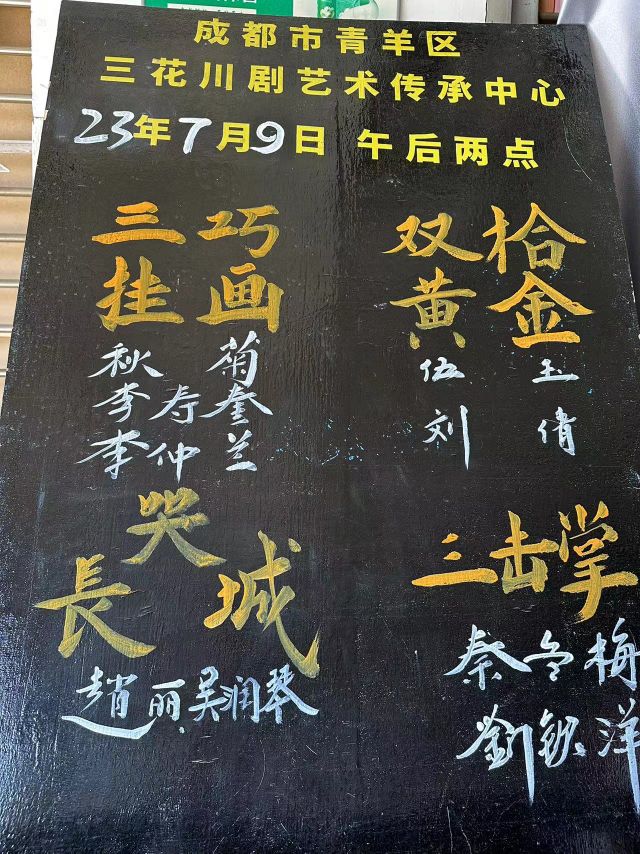 成都市青羊区
三花川剧艺术传承中心
23年7月9日 午后两点
三巧
挂画
秋菊
李寿奎
李仲兰
双拾
黄金
伍玉
刘倩
哭
長城
趙丽 吴润琴
三击掌
秦冬梅
劉 洋